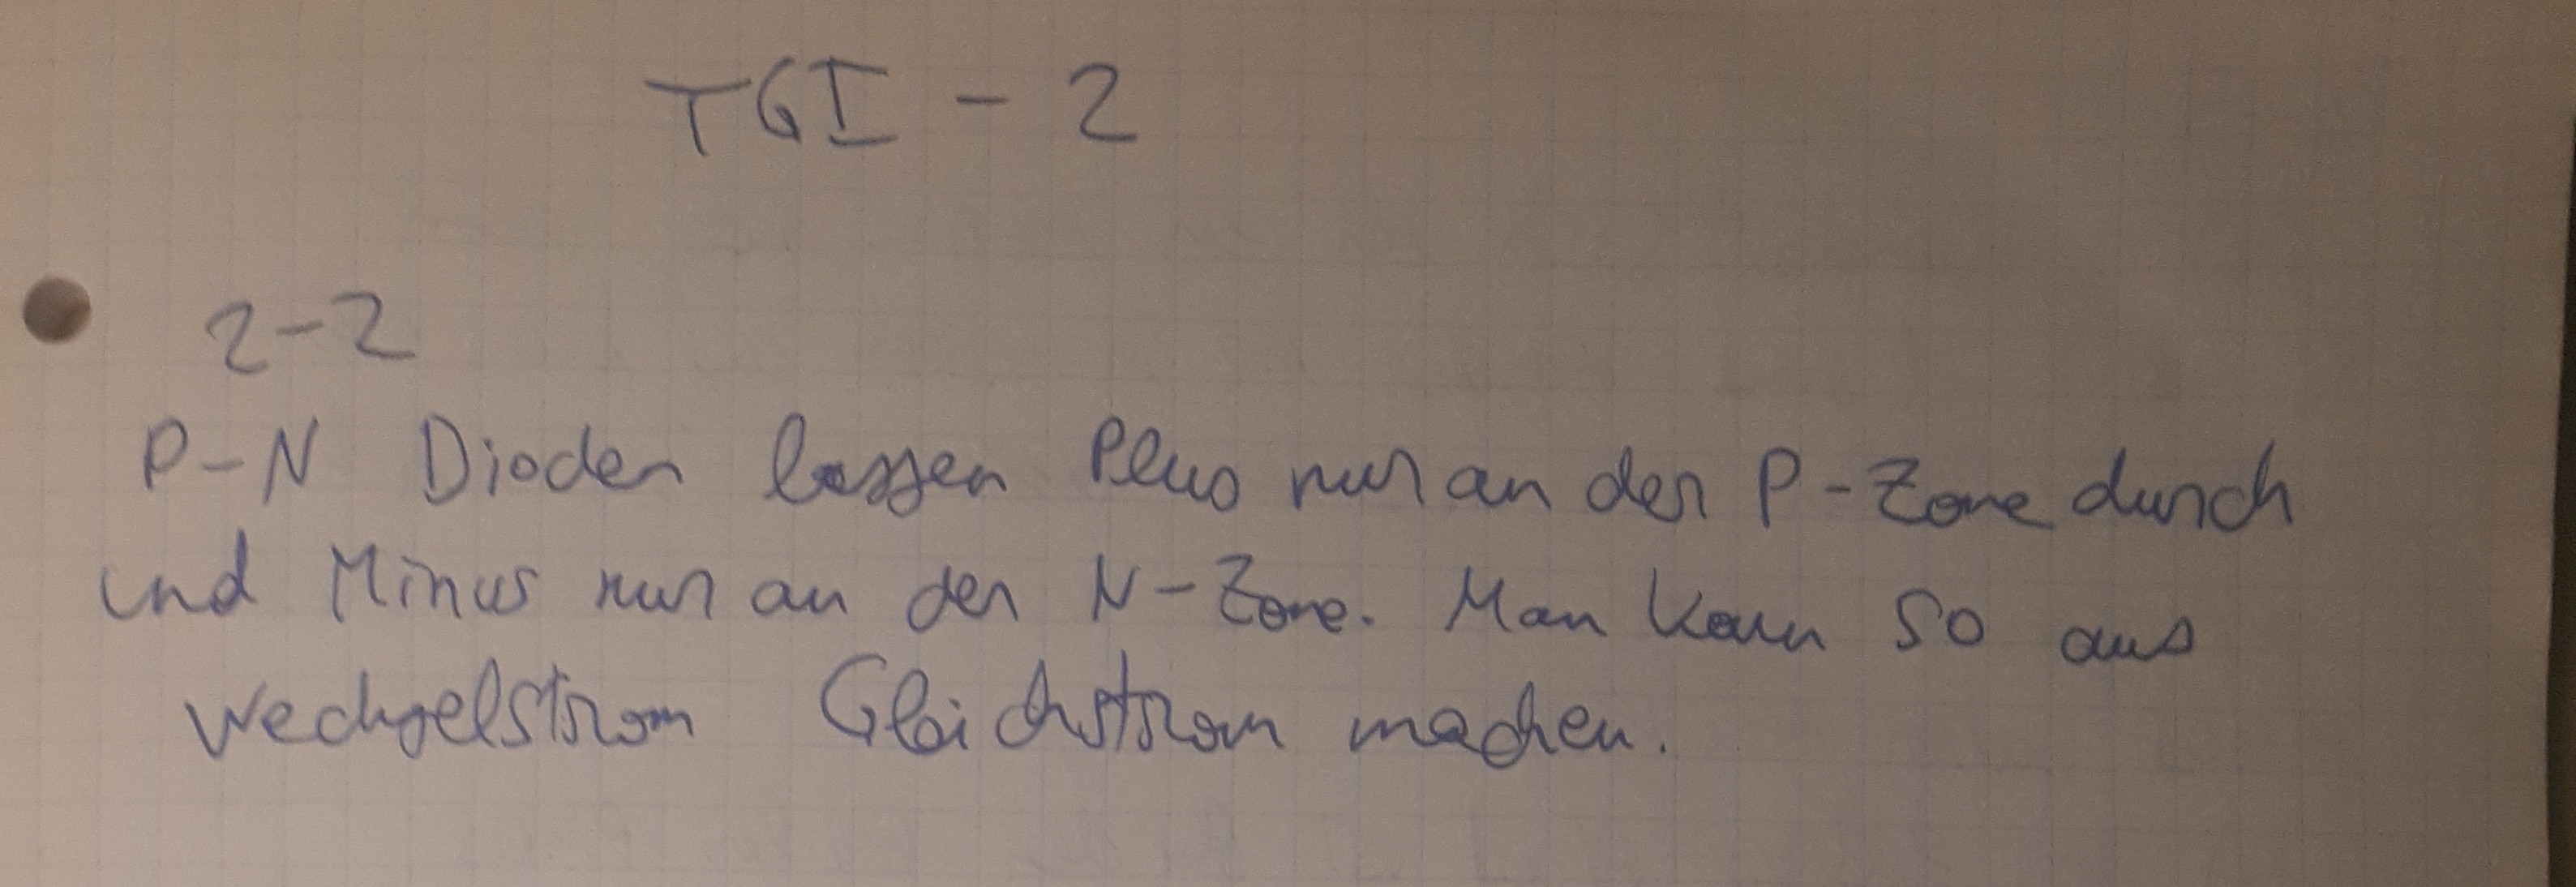 TGI - 2
2-2
P-N Dioden lassen Plus nur an der P-Zone durch
und Minus nur an der N-Zone. Man kann so aus
Wechselstrom Gleichstrom machen.